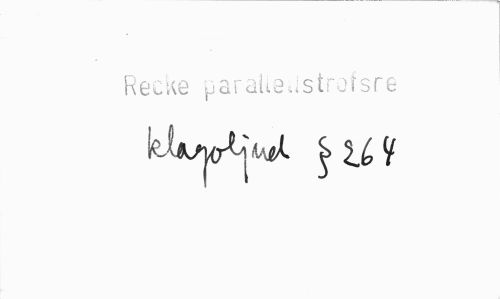 Recke parallellstrofsre
klagoljud § 264